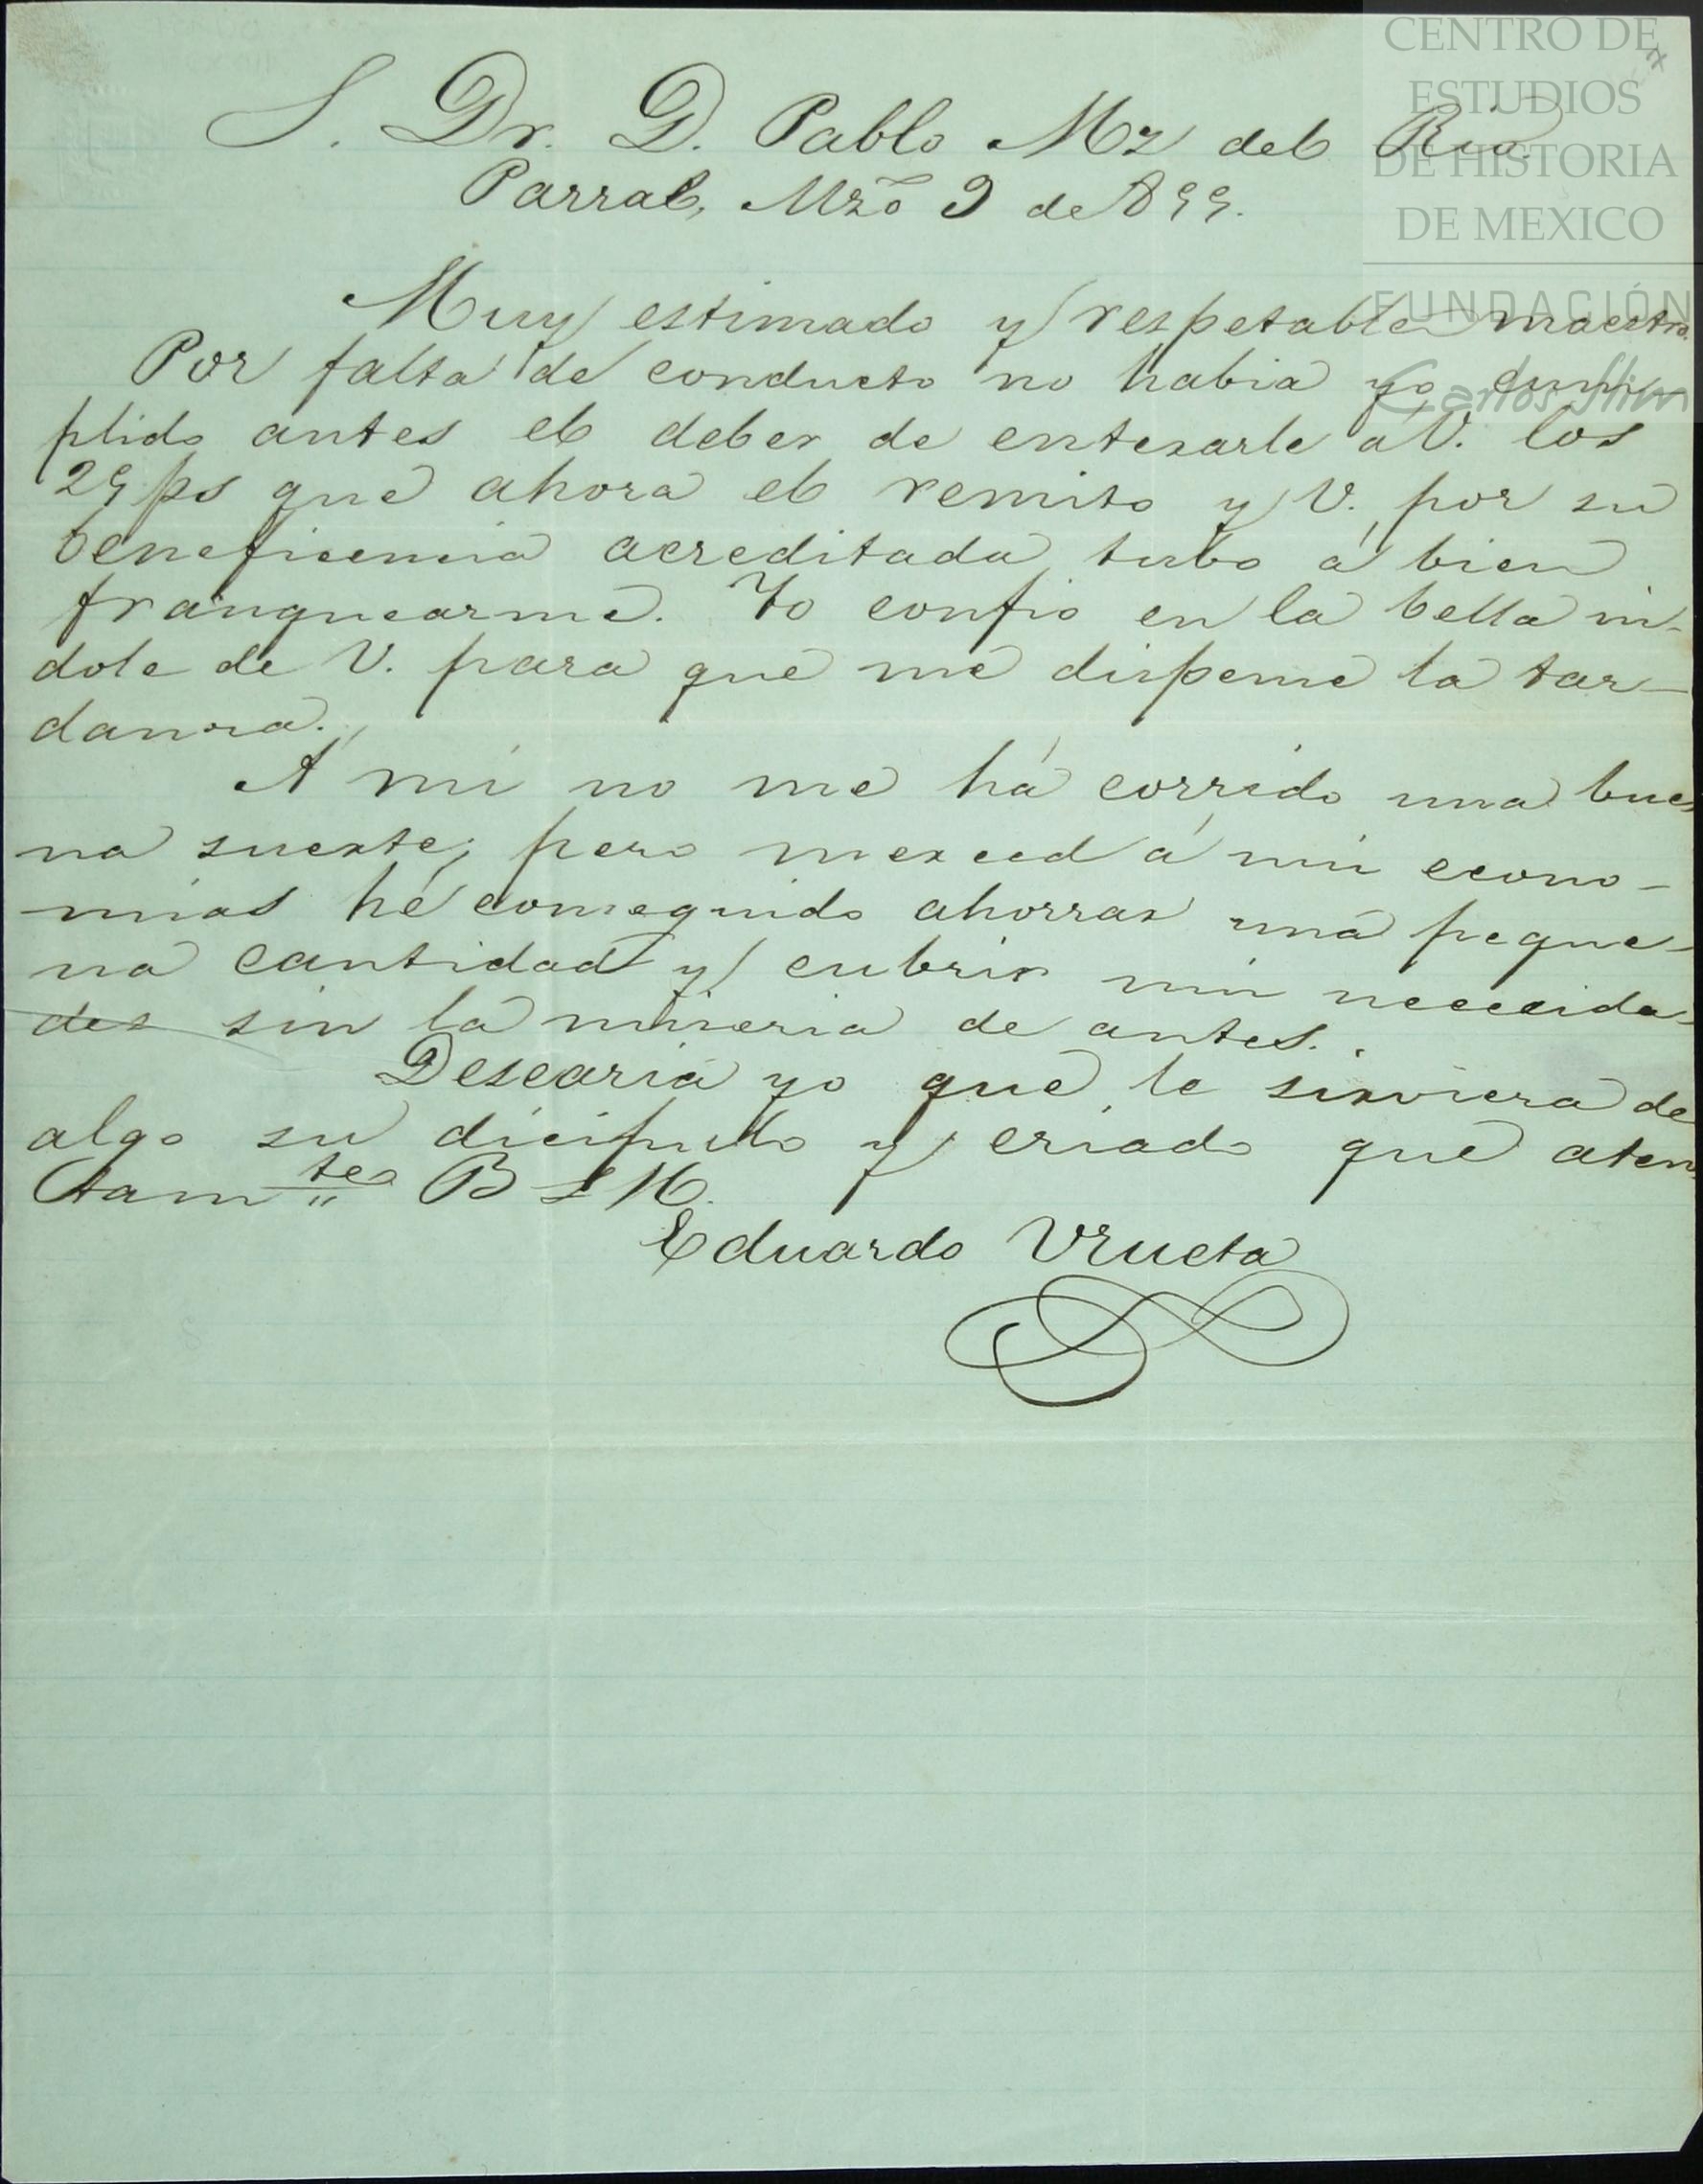 S. Dr. D. Pablo Mz del Rio.
Parral, Mzo 9 de 899.
Muy estimado y respetable maestro.
Por falta de conducto no habia yo cum-
plido antes el deber de enterarle á V. los
29 ps que ahora el remito y V. por su
beneficencia acreditada tubo á bien
franquearme. Yo confio en la bella in-
dole de V. para que me dispense la tar-
danza.
A mi no me há corrido una bue-
na suerte; pero merced á mis econo-
mias hé conseguido ahorrar una peque-
na cantidad y cubrir mis nececida-
des sin la miseria de antes.
Desearia yo que le sirviera de
algo su dicipulo y criado que aten-
tamte B S M.
Eduardo Urueta
CENTRO DE
ESTUDIOS
DE HISTORIA
DE MEXICO
FUNDACIÓN
Carlos Slim